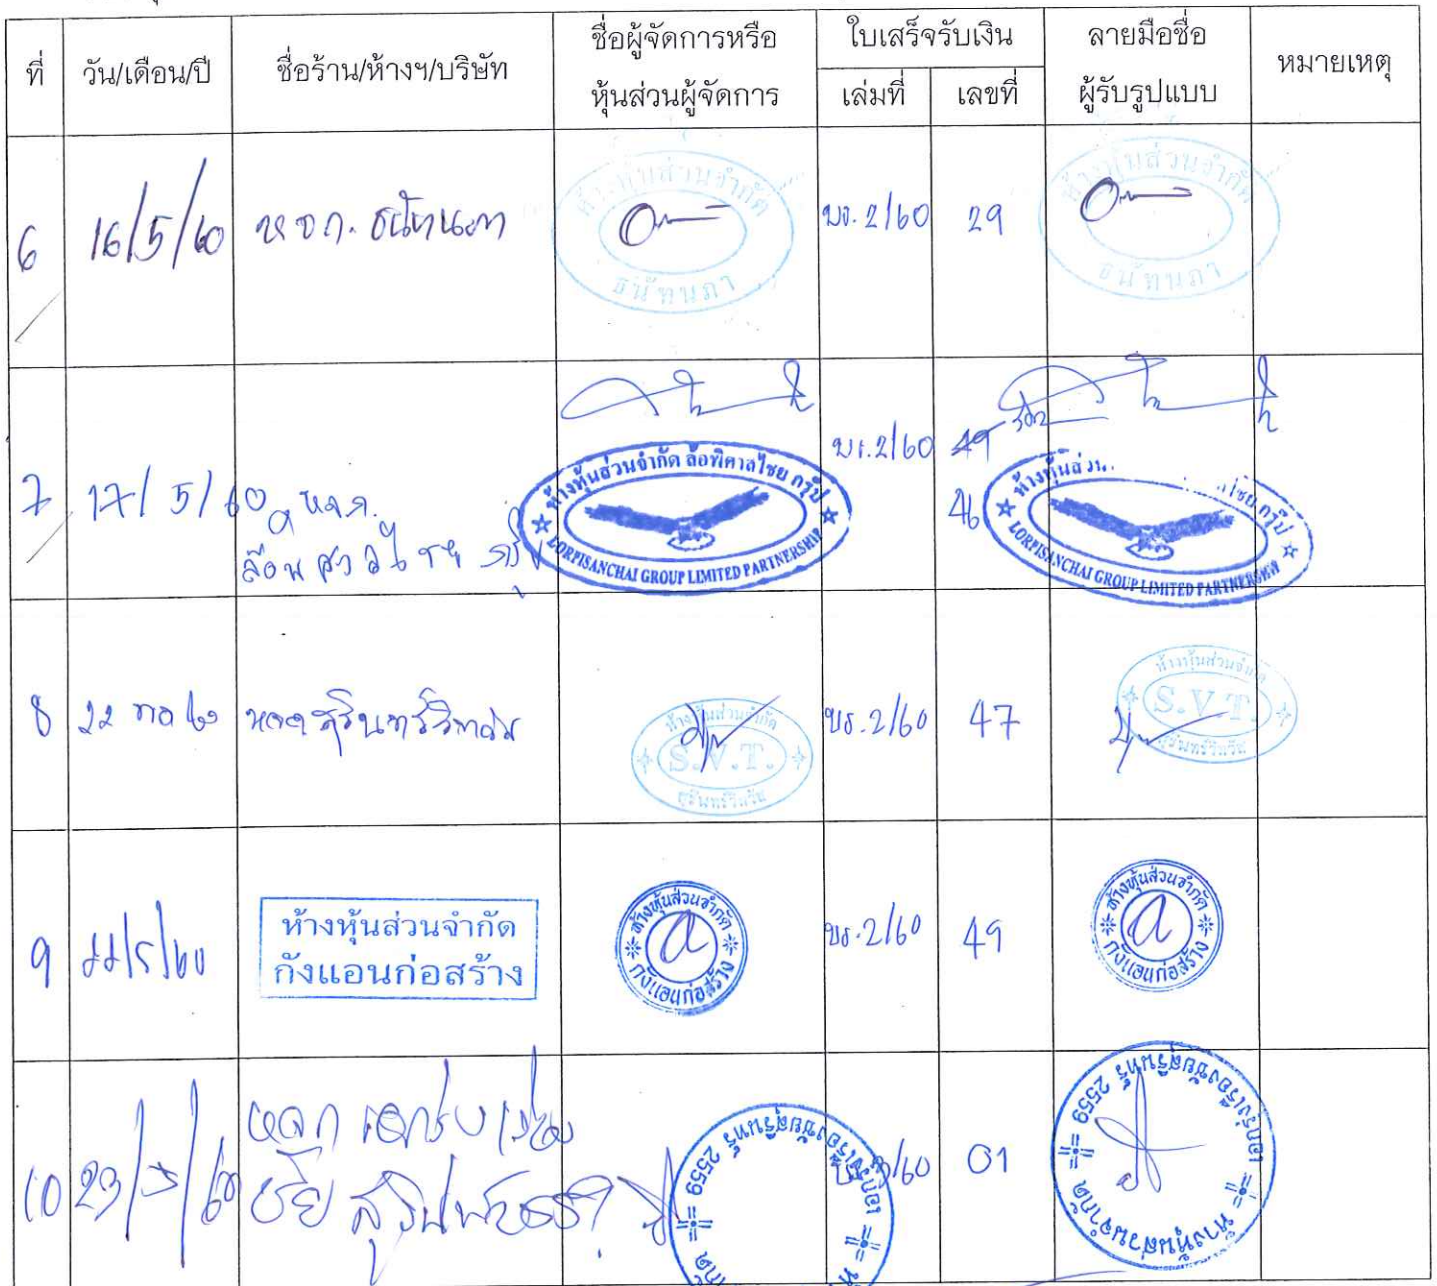 ที่
วัน/เดือน/ปี
ชื่อร้าน/ห้างฯ/บริษัท
ชื่อผู้จัดการหรือ
หุ้นส่วนผู้จัดการ
ใบเสร็จรับเงิน
เล่มที่
เลขที่
ลายมือชื่อ
ผู้รับรูปแบบ
หมายเหตุ
6
16/5/60
หจก. ธนัทนภา
ห้างหุ้นส่วนจำกัด
ธนัทนภา
บร. 2/60
29
ห้างหุ้นส่วนจำกัด
ธนัทนภา
7
17/5/60
หจก.
ล้อพิศาลไชย กรุ๊ป
ห้างหุ้นส่วนจำกัด ล้อพิศาลไชย กรุ๊ป
LORPISANCHAI GROUP LIMITED PARTNERSHIP
บร.2/60
49
46
ห้างหุ้นส่วน ไชย กรุ๊ป
LORPISANCHAI GROUP LIMITED PARTNERSHIP
8
22 พค 60
หจก สุรินทร์วิทวัช
ห้างหุ้นส่วนจำกัด
S.V.T.
บร.2/60
47
ห้างหุ้นส่วนจำกัด
S.V.T.
9
22/5/60
ห้างหุ้นส่วนจำกัด
กังแอนก่อสร้าง
ห้างหุ้นส่วนจำกัด
กังแอนก่อสร้าง
บร.2/60
49
ห้างหุ้นส่วนจำกัด
กังแอนก่อสร้าง
10
23/5/60
หจก
ชัย สุรินทร์
เอกรุ่งเรืองชัยสุรินทร์ 2559
/60
01
ห้างหุ้นส่วนจำกัด
เอกรุ่งเรืองชัยสุรินทร์ 2559